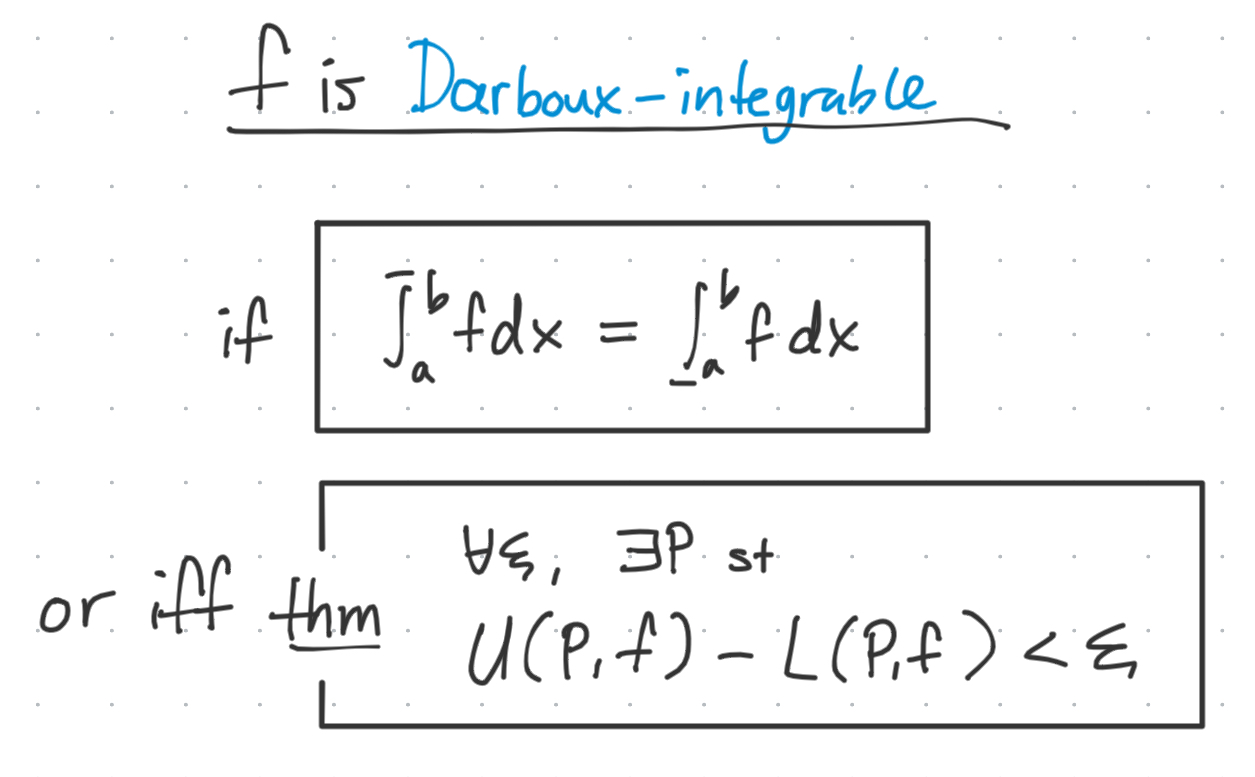 f is Darboux-integrable
if ∫̅ₐᵇ f dx = ∫̲ₐᵇ f dx
∀ξ, ∃P st
or iff thm U(P,f) - L(P,f) < ξ